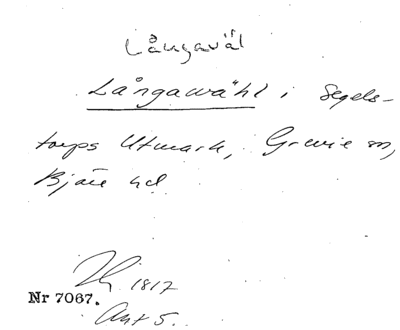 Långaväl
Långawähl i Segels-
torps Utmark, Grevie sn,
Bjäre hd
1812
Nr 7067.
Akt 5.